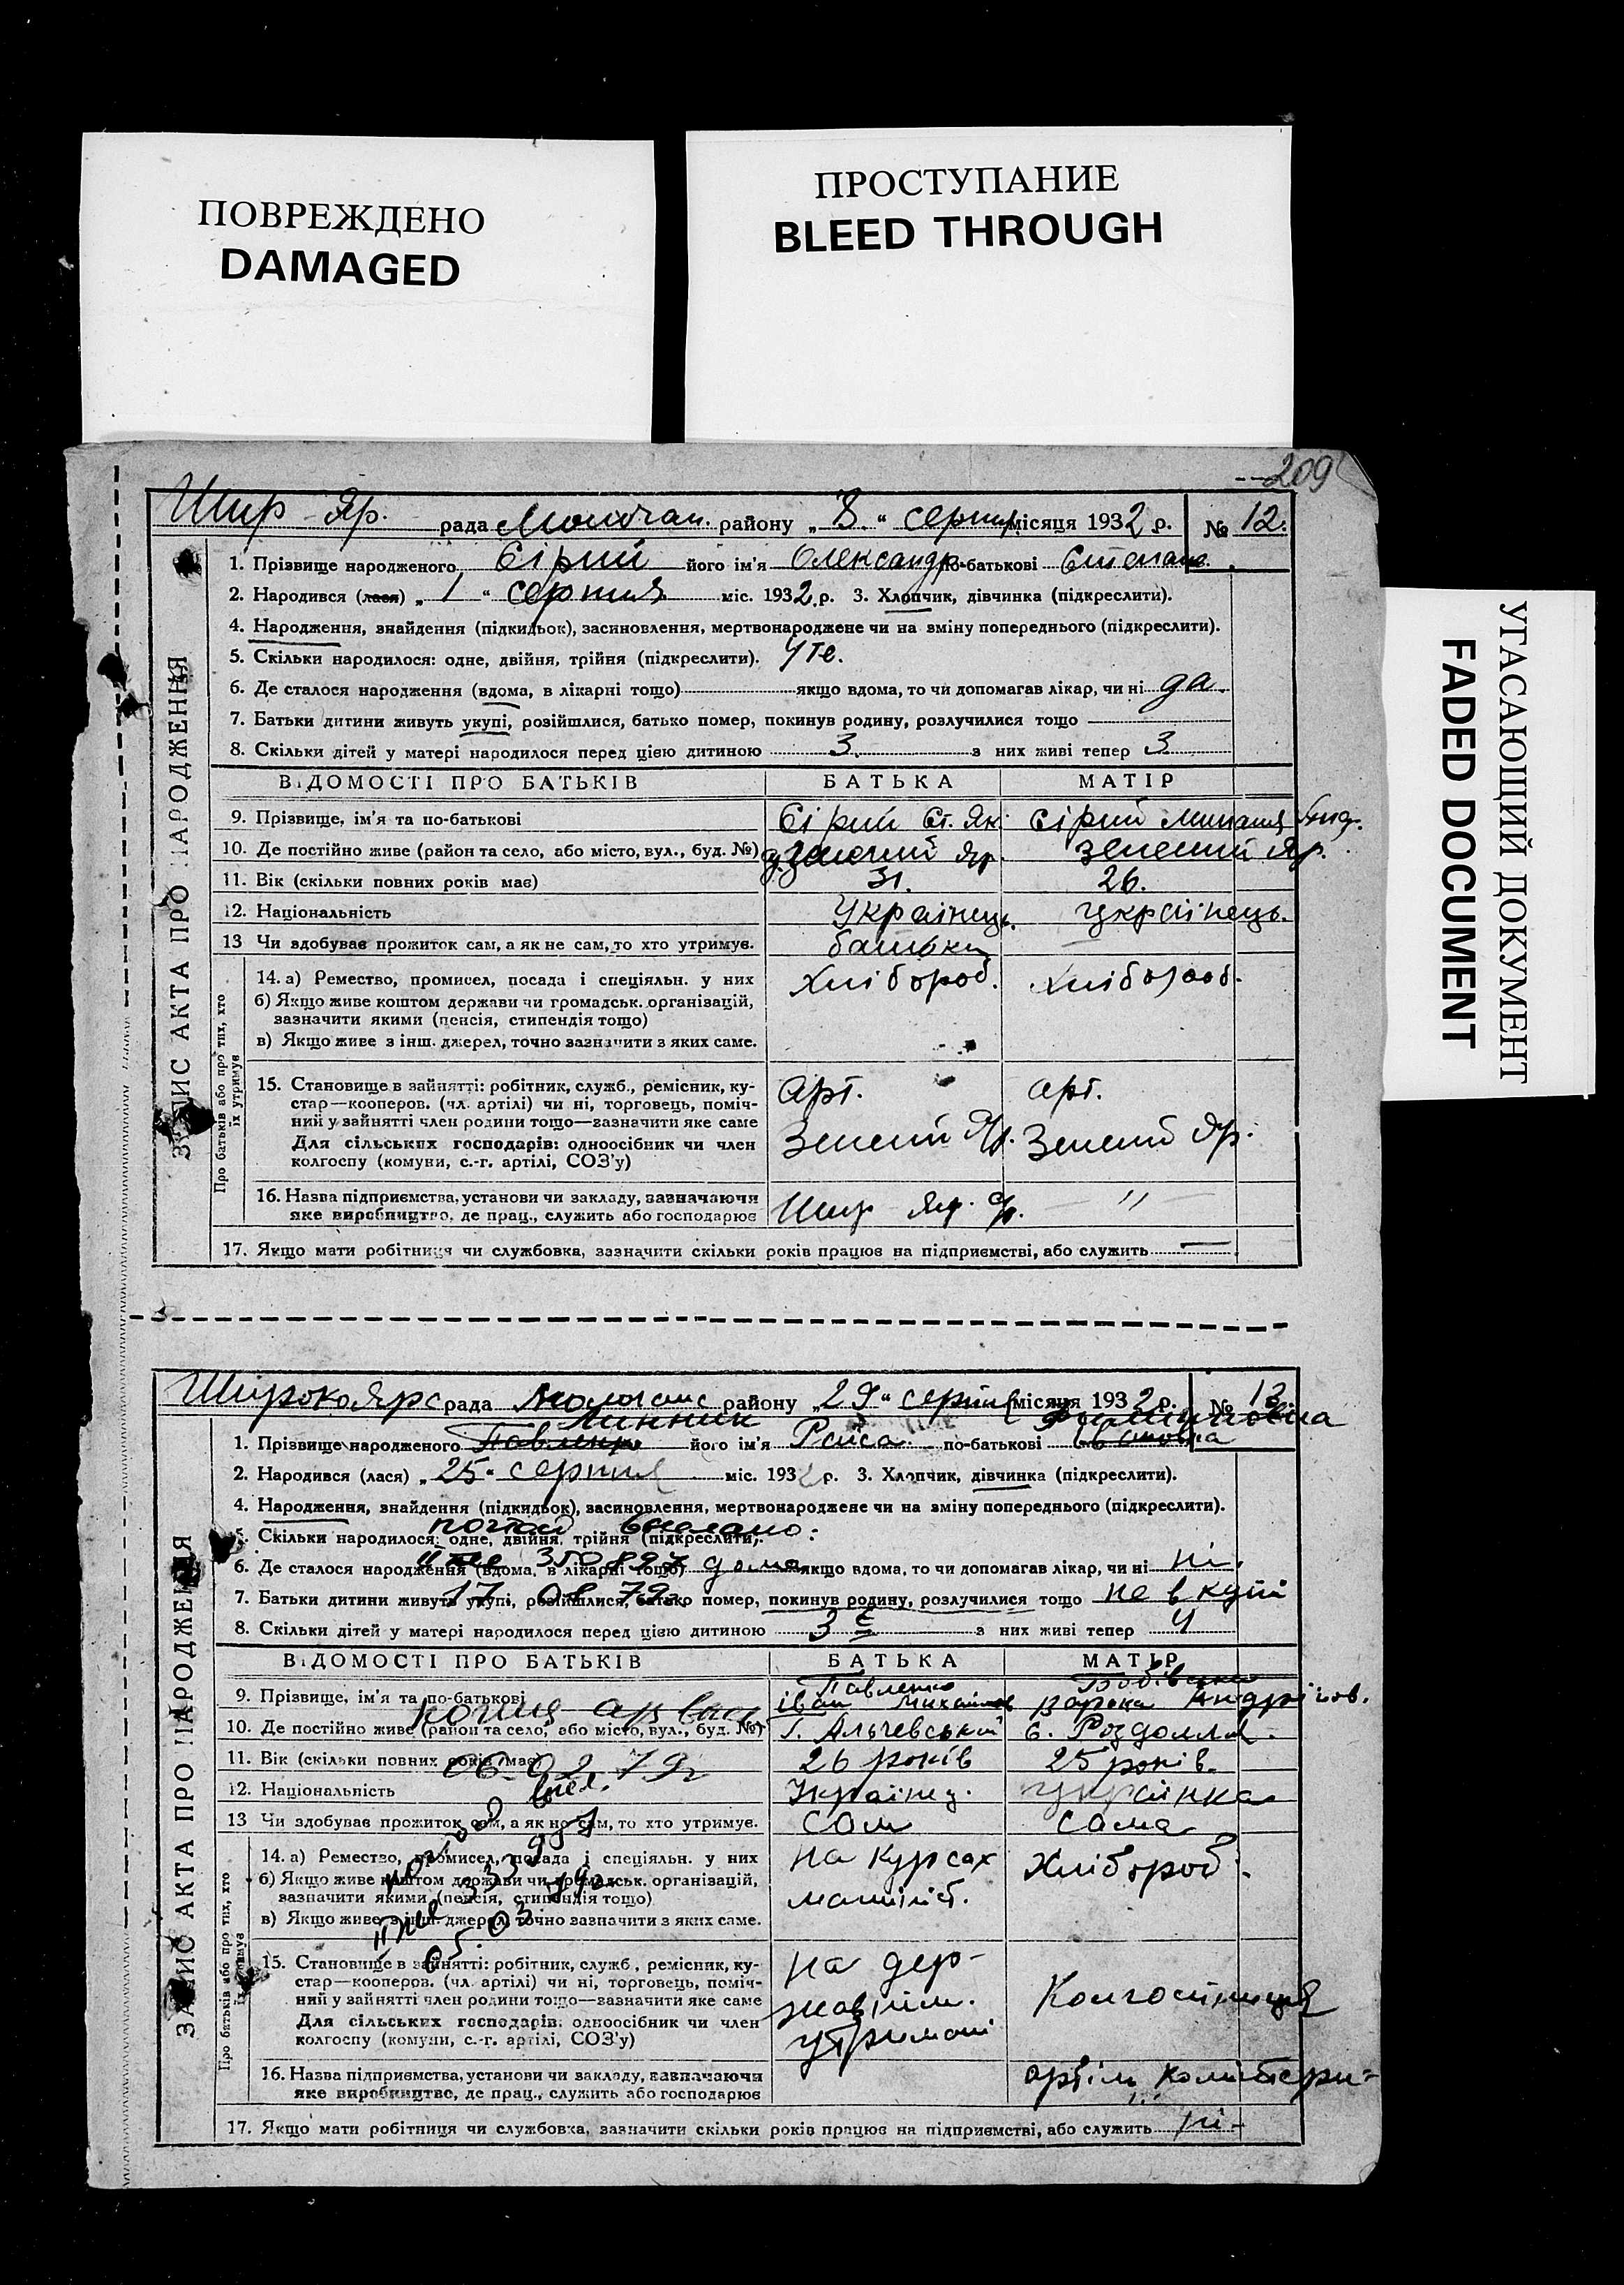 ПОВРЕЖДЕНО
DAMAGED
ПРОСТУПАНИЕ
BLEED THROUGH
УГАСАЮЩИЙ ДОКУМЕНТ
FADED DOCUMENT
209
Шир-Яр. рада району „8.“ серпня місяця 1932 р. № 12.
ЗАПИС АКТА ПРО НАРОДЖЕННЯ
1. Прізвище народженого Сірий його ім'я Олександр по-батькові Степанов.
2. Народився (лася) „1“ серпня міс. 1932 р. 3. Хлопчик, дівчинка (підкреслити).
4. Народження, знайдення (підкидьок), засиновлення, мертвонароджене чи на зміну попереднього (підкреслити).
5. Скільки народилося: одне, двійня, трійня (підкреслити). 4те.
6. Де сталося народження (вдома, в лікарні тощо) якщо вдома, то чи допомагав лікар, чи ні да.
7. Батьки дитини живуть укупі, розійшлися, батько помер, покинув родину, розлучилися тощо
8. Скільки дітей у матері народилося перед цією дитиною 3. з них живі тепер 3
ВІДОМОСТІ ПРО БАТЬКІВ БАТЬКА МАТІР
9. Прізвище, ім'я та по-батькові Сірий Ст. Як. Сірий
10. Де постійно живе (район та село, або місто, вул., буд. №) Яр. Зелений Яр.
11. Вік (скільки повних років має) 31. 26.
12. Національність Українець. Українець.
13 Чи здобуває прожиток сам, а як не сам, то хто утримує. батьки
Про батьків або про тих, хто їх утримує
14. а) Ремество, промисел, посада і спеціяльн. у них Хлібороб. Хлібороб.
б) Якщо живе коштом держави чи громадськ. організацій,
зазначити якими (пенсія, стипендія тощо)
в) Якщо живе з інш. джерел, точно зазначити з яких саме.
15. Становище в зайнятті: робітник, служб., ремісник, ку- арт. арт.
стар—кооперов. (чл. артілі) чи ні, торговець, поміч-
ний у зайнятті член родини тощо—зазначити яке саме Зелений Яр. Зелений Яр.
Для сільських господарів: одноосібник чи член
колгоспу (комуни, с.-г. артілі, СОЗ'у)
16. Назва підприємства, установи чи закладу, зазначаючи Шир Яр. с/р. — " —
яке виробництво, де прац., служить або господарює
17. Якщо мати робітниця чи службовка, зазначити скільки років працює на підприємстві, або служить —
Широкоярс рада району „29“ серпня місяця 1932 р. № 13.
Линник
ЗАПИС АКТА ПРО НАРОДЖЕННЯ
1. Прізвище народженого Павленко його ім'я Раїса по-батькові Івановна
2. Народився (лася) „25“ серпня міс. 1932 р. 3. Хлопчик, дівчинка (підкреслити).
4. Народження, знайдення (підкидьок), засиновлення, мертвонароджене чи на зміну попереднього (підкреслити).
5. Скільки народилося: одне, двійня, трійня (підкреслити).
6. Де сталося народження (вдома, в лікарні тощо) дома якщо вдома, то чи допомагав лікар, чи ні ні.
350897
7. Батьки дитини живуть укупі, розійшлися, батько помер, покинув родину, розлучилися тощо не вкупі
17 08 79г
8. Скільки дітей у матері народилося перед цією дитиною 3 є з них живі тепер 4
ВІДОМОСТІ ПРО БАТЬКІВ БАТЬКА МАТІР
9. Прізвище, ім'я та по-батькові Павленко Іван Михайлов Андріїов.
10. Де постійно живе (район та село, або місто, вул., буд. №) г. Альчевський с. Роздолля.
11. Вік (скільки повних років має) 26 років 25 років.
06-02 79г
12. Національність Українец. Українка
13 Чи здобуває прожиток сам, а як не сам, то хто утримує. сам сама
Про батьків або про тих, хто їх утримує
14. а) Ремество, промисел, посада і спеціяльн. у них на курсах Хлібороб.
б) Якщо живе коштом держави чи громадськ. організацій, машиніст.
зазначити якими (пенсія, стипендія тощо)
в) Якщо живе з інш. джерел, точно зазначити з яких саме.
15. Становище в зайнятті: робітник, служб., ремісник, ку- на дер-
стар—кооперов. (чл. артілі) чи ні, торговець, поміч- жавнім. Колгоспниця
ний у зайнятті член родини тощо—зазначити яке саме утримані
Для сільських господарів: одноосібник чи член
колгоспу (комуни, с.-г. артілі, СОЗ'у)
16. Назва підприємства, установи чи закладу, зазначаючи артіль
яке виробництво, де прац., служить або господарює
17. Якщо мати робітниця чи службовка, зазначити скільки років працює на підприємстві, або служить ні-